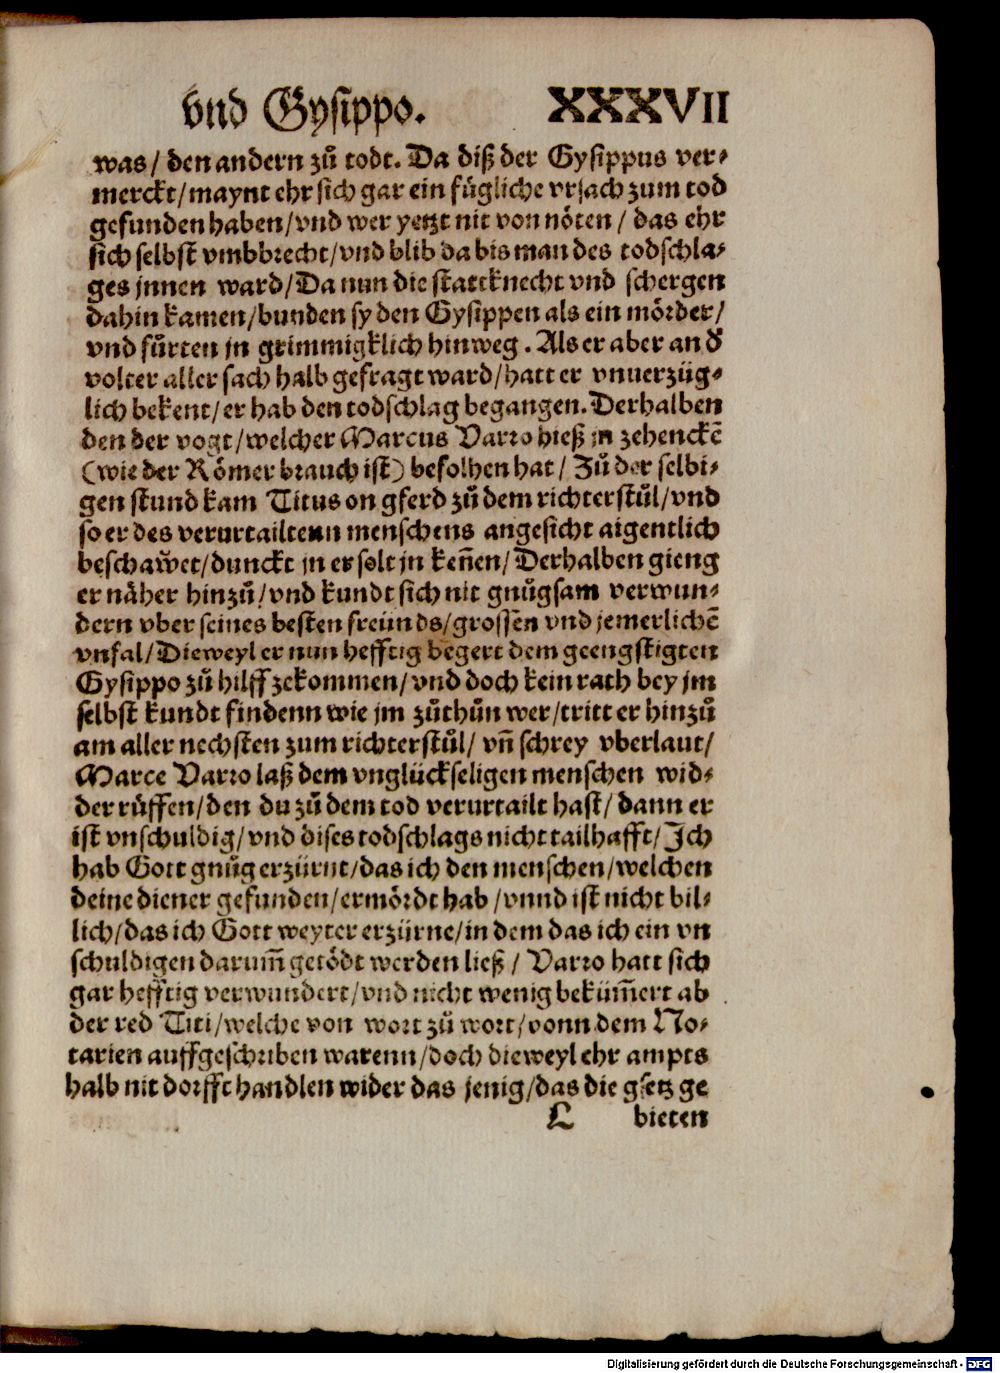 vnd Gysippo. XXXVII
was/ den andern zů todt. Da diß der Gysippus ver⸗
merckt/maynt ehr sich gar ein fügliche vrsach zum tod
gefunden haben/vnd wer yetzt nit von nöten/ das ehr
sich selbst vmbbrecht/vnd blib da bis man des todschla⸗
ges jnnen ward/Da nun die stattknecht vnd schergen
dahin kamen/bunden sy den Gysippen als ein mörder/
vnd fůrten jn grimmigklich hinweg. Als er aber an d̕
volter aller sach halb gefragt ward/hatt er vnuerzüg⸗
lich bekent/er hab den todschlag begangen. Derhalben
den der vogt/welcher Marcus Varro hieß jn zehenckē
(wie der Römer brauch ist) befolhen hat/ Zů der selbi⸗
gen stund kam Titus on gferd zů dem richterstůl/vnd
so er des verurtailtenn menschens angesicht aigentlich
beschaw̆et/dunckt jn er solt jn keñen/ Derhalben gieng
er näher hinzů/vnd kundt sich nit gnůgsam verwun⸗
dern vber seines besten freünds/grossen vnd jemerlichē
vnfal/Dieweyl er nun hefftig begert dem geengstigten
Gysippo zů hilff zekommen/vnd doch kein rath bey jm
selbst kundt findenn wie jm zůthůn wer/tritt er hinzů
am aller nechsten zum richterstůl/ vñ schrey vberlaut/
Marce Varro laß dem vnglückseligen menschen wid⸗
der růffen/den du zů dem tod verurtailt hast/ dann er
ist vnschuldig/vnd dises todschlags nicht tailhafft/Ich
hab Gott gnůg erzürnt/das ich den menschen/welchen
deine diener gefunden/ermördt hab/vnnd ist nicht bil⸗
lich/das ich Gott weyter erzürne/in dem das ich ein vn
schuldigen darum̃ getödt werden ließ/ Varro hatt sich
gar hefftig verwundert/vnd nicht wenig beküm̃ert ab
der red Titi/welche von wort zů wort/vonn dem No⸗
tarien auffgeschriben warenn/doch dieweyl ehr ampts
halb nit dorfft handlen wider das jenig/das die gsetz ge
L bieten
Digitalisierung gefördert durch die Deutsche Forschungsgemeinschaft - DFG